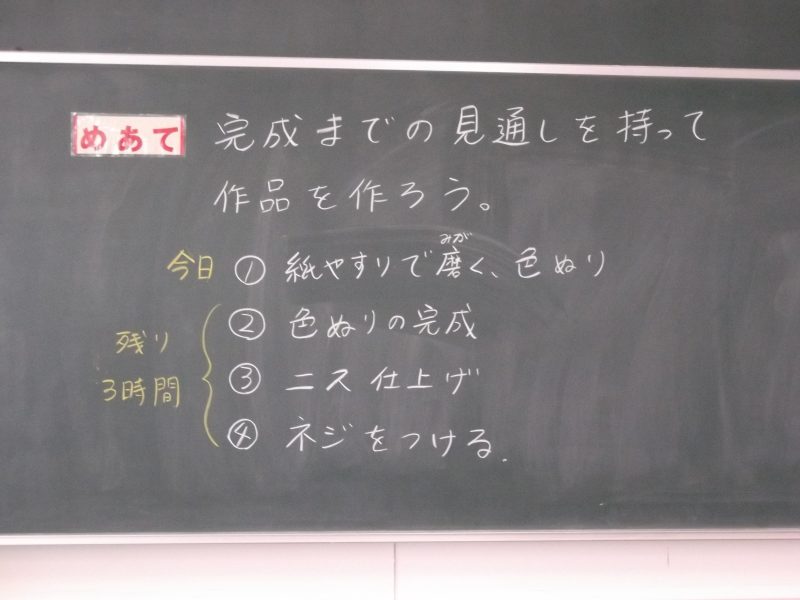 めあて 完成までの見通しを持って
作品を作ろう。
今日 ① 紙やすりで磨く、色ぬり
みが
② 色ぬりの完成
残り
3時間
③ ニス仕上げ
④ ネジをつける.